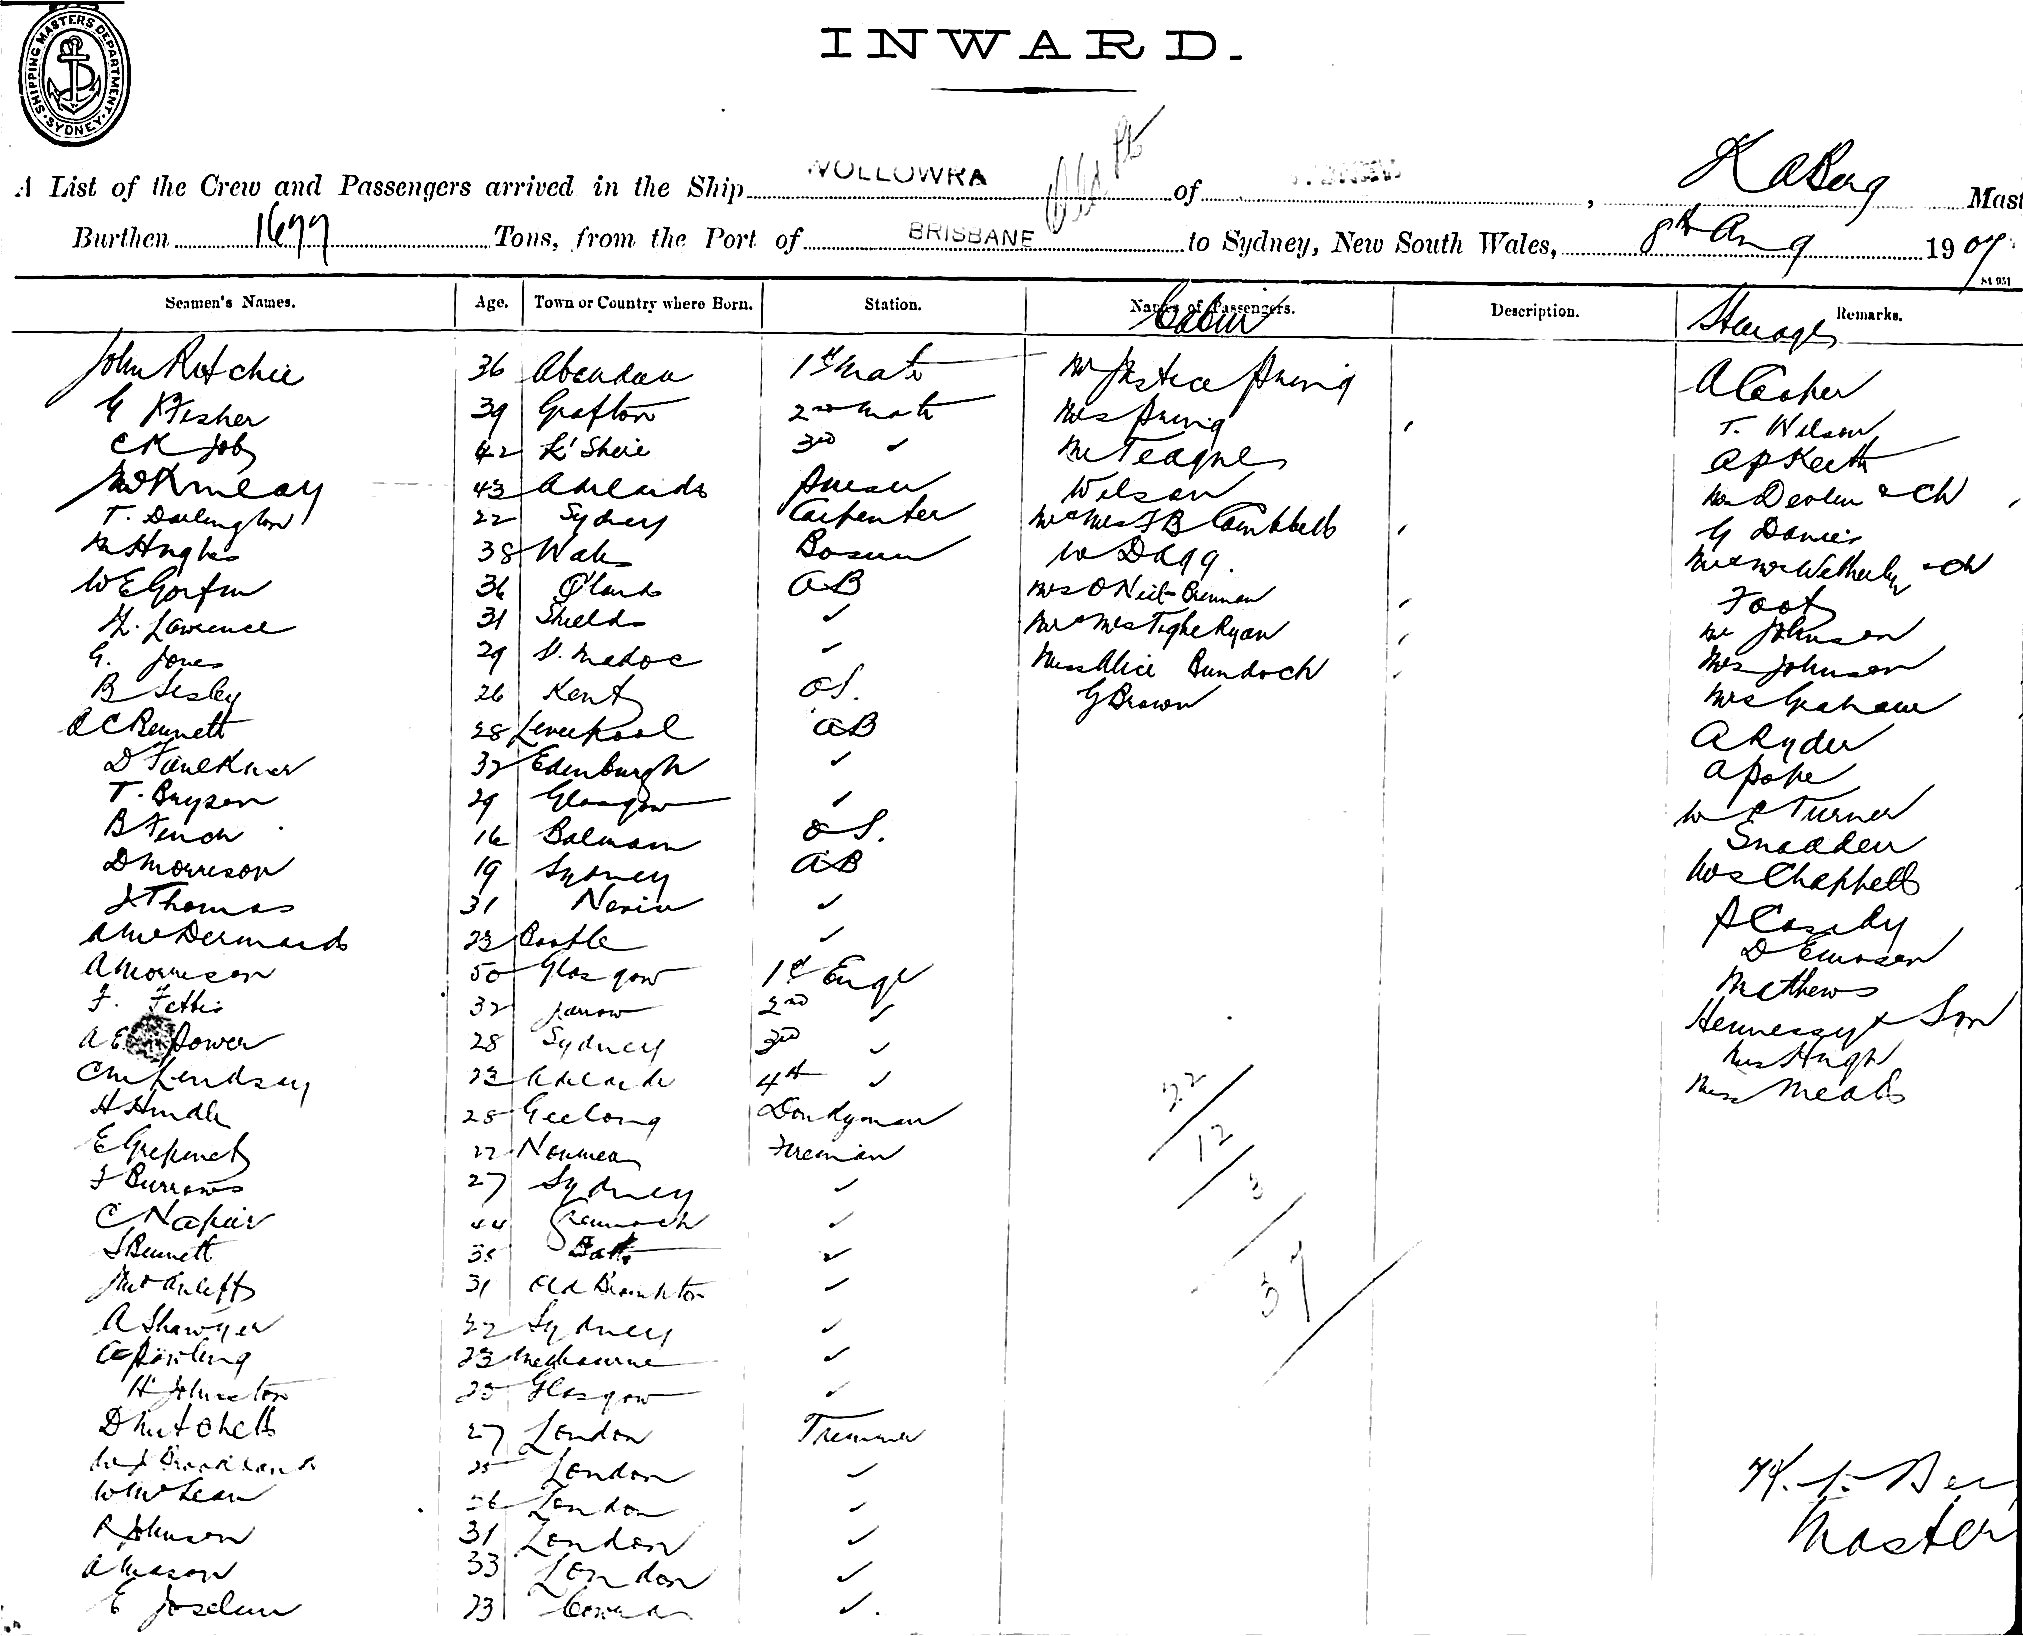 SHIPPING MASTERS DEPARTMENT. SYDNEY.
INWARD.
A List of the Crew and Passengers arrived in the Ship WOLLOWRA of SYDNEY, K A Berg Mast
Burthen 1677 Tons, from the Port of BRISBANE to Sydney, New South Wales, 8th Aug 1907
Seamen's Names. Age. Town or Country where Born. Station. Names of Passengers. Description. Remarks.
Cabin Steerage
John Ritchie 36 Aberdeen 1st Mate Mr Justice Pring A Casher
G Fisher 39 Grafton 2nd Mate Mrs Pring T. Wilson
C K Joby 42 3rd ✓ Mr Teague A P Keith
McKinlay 43 Adelaide Purser Wilson Mrs Devlin & Ch
T. Darlington 22 Sydney Carpenter Mr & Mrs F B Campbell G Davies
M Hughes 38 Wales Bosun W Dagg. Mr & Mrs Wetherley & Ch
W E Gorfin 36 Q'land AB Mrs O'Neil Brennan Foot
H. Lawrence 31 Shields ✓ Mr & Mrs Tighe Ryan Mr Johnson
G. Jones 29 P. Madoc ✓ Miss Alice Bundock Mrs Johnson
B Sesley 26 Kent OS. G Brown Mrs Graham
A C Bennett 28 Liverpool AB A Ryder
D Faulkner 32 Edinburgh ✓ A Pope
T. Bryson 29 Glasgow ✓ W C Turner
B Finch 16 Balmain OS. Snadden
D Morrison 19 Sydney AB Mrs Chappell
J Thomas 31 Nevin ✓ P Cassidy
A McDermaid 23 Bootle ✓ D Emerson
A Morrison 50 Glasgow 1st Engr Mathews
F. Fettis 32 Jarrow 2nd ✓ Hennessy & Son
A E Power 28 Sydney 3rd ✓ Mrs Hugh
C M Lindsay 23 Adelaide 4th ✓ Miss Meale
H Hindle 25 Geelong Donkeyman 22
E 22 Noumea Fireman 12
F Burrows 27 Sydney ✓ 3
C Napier 44 Greenock ✓
S Bennett 35 ✓
31 Old Brompton ✓ 37
A Shawyer 22 Sydney ✓
23 Melbourne ✓
H Johnston 25 Glasgow ✓
D Mitchell 27 London Trimmer
25 London ✓
W McLean 26 London ✓
R Johnson 31 London ✓ Master
A Mason 33 London ✓
E Joselin 23 ✓.